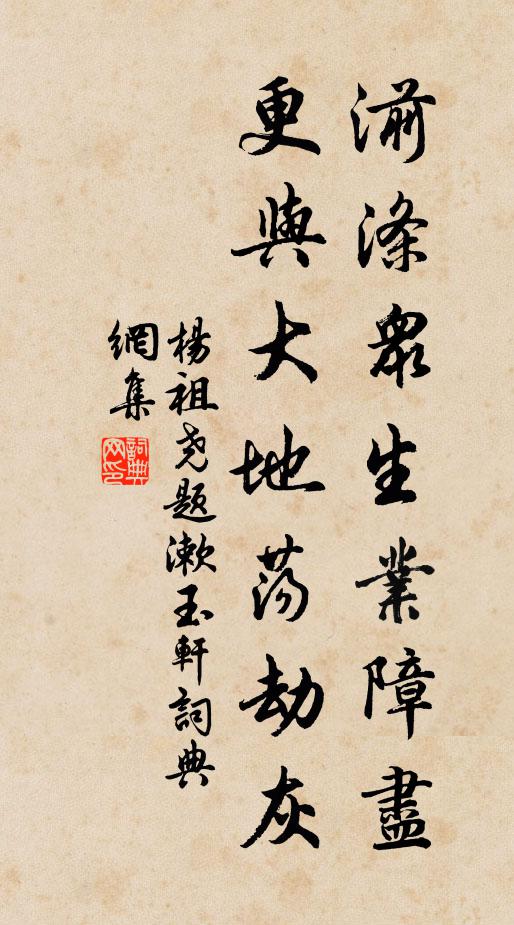 湔滌眾生業障盡
更與大地蕩劫灰
楊祖尧題漱玉軒詞典
網集
詞典
网印